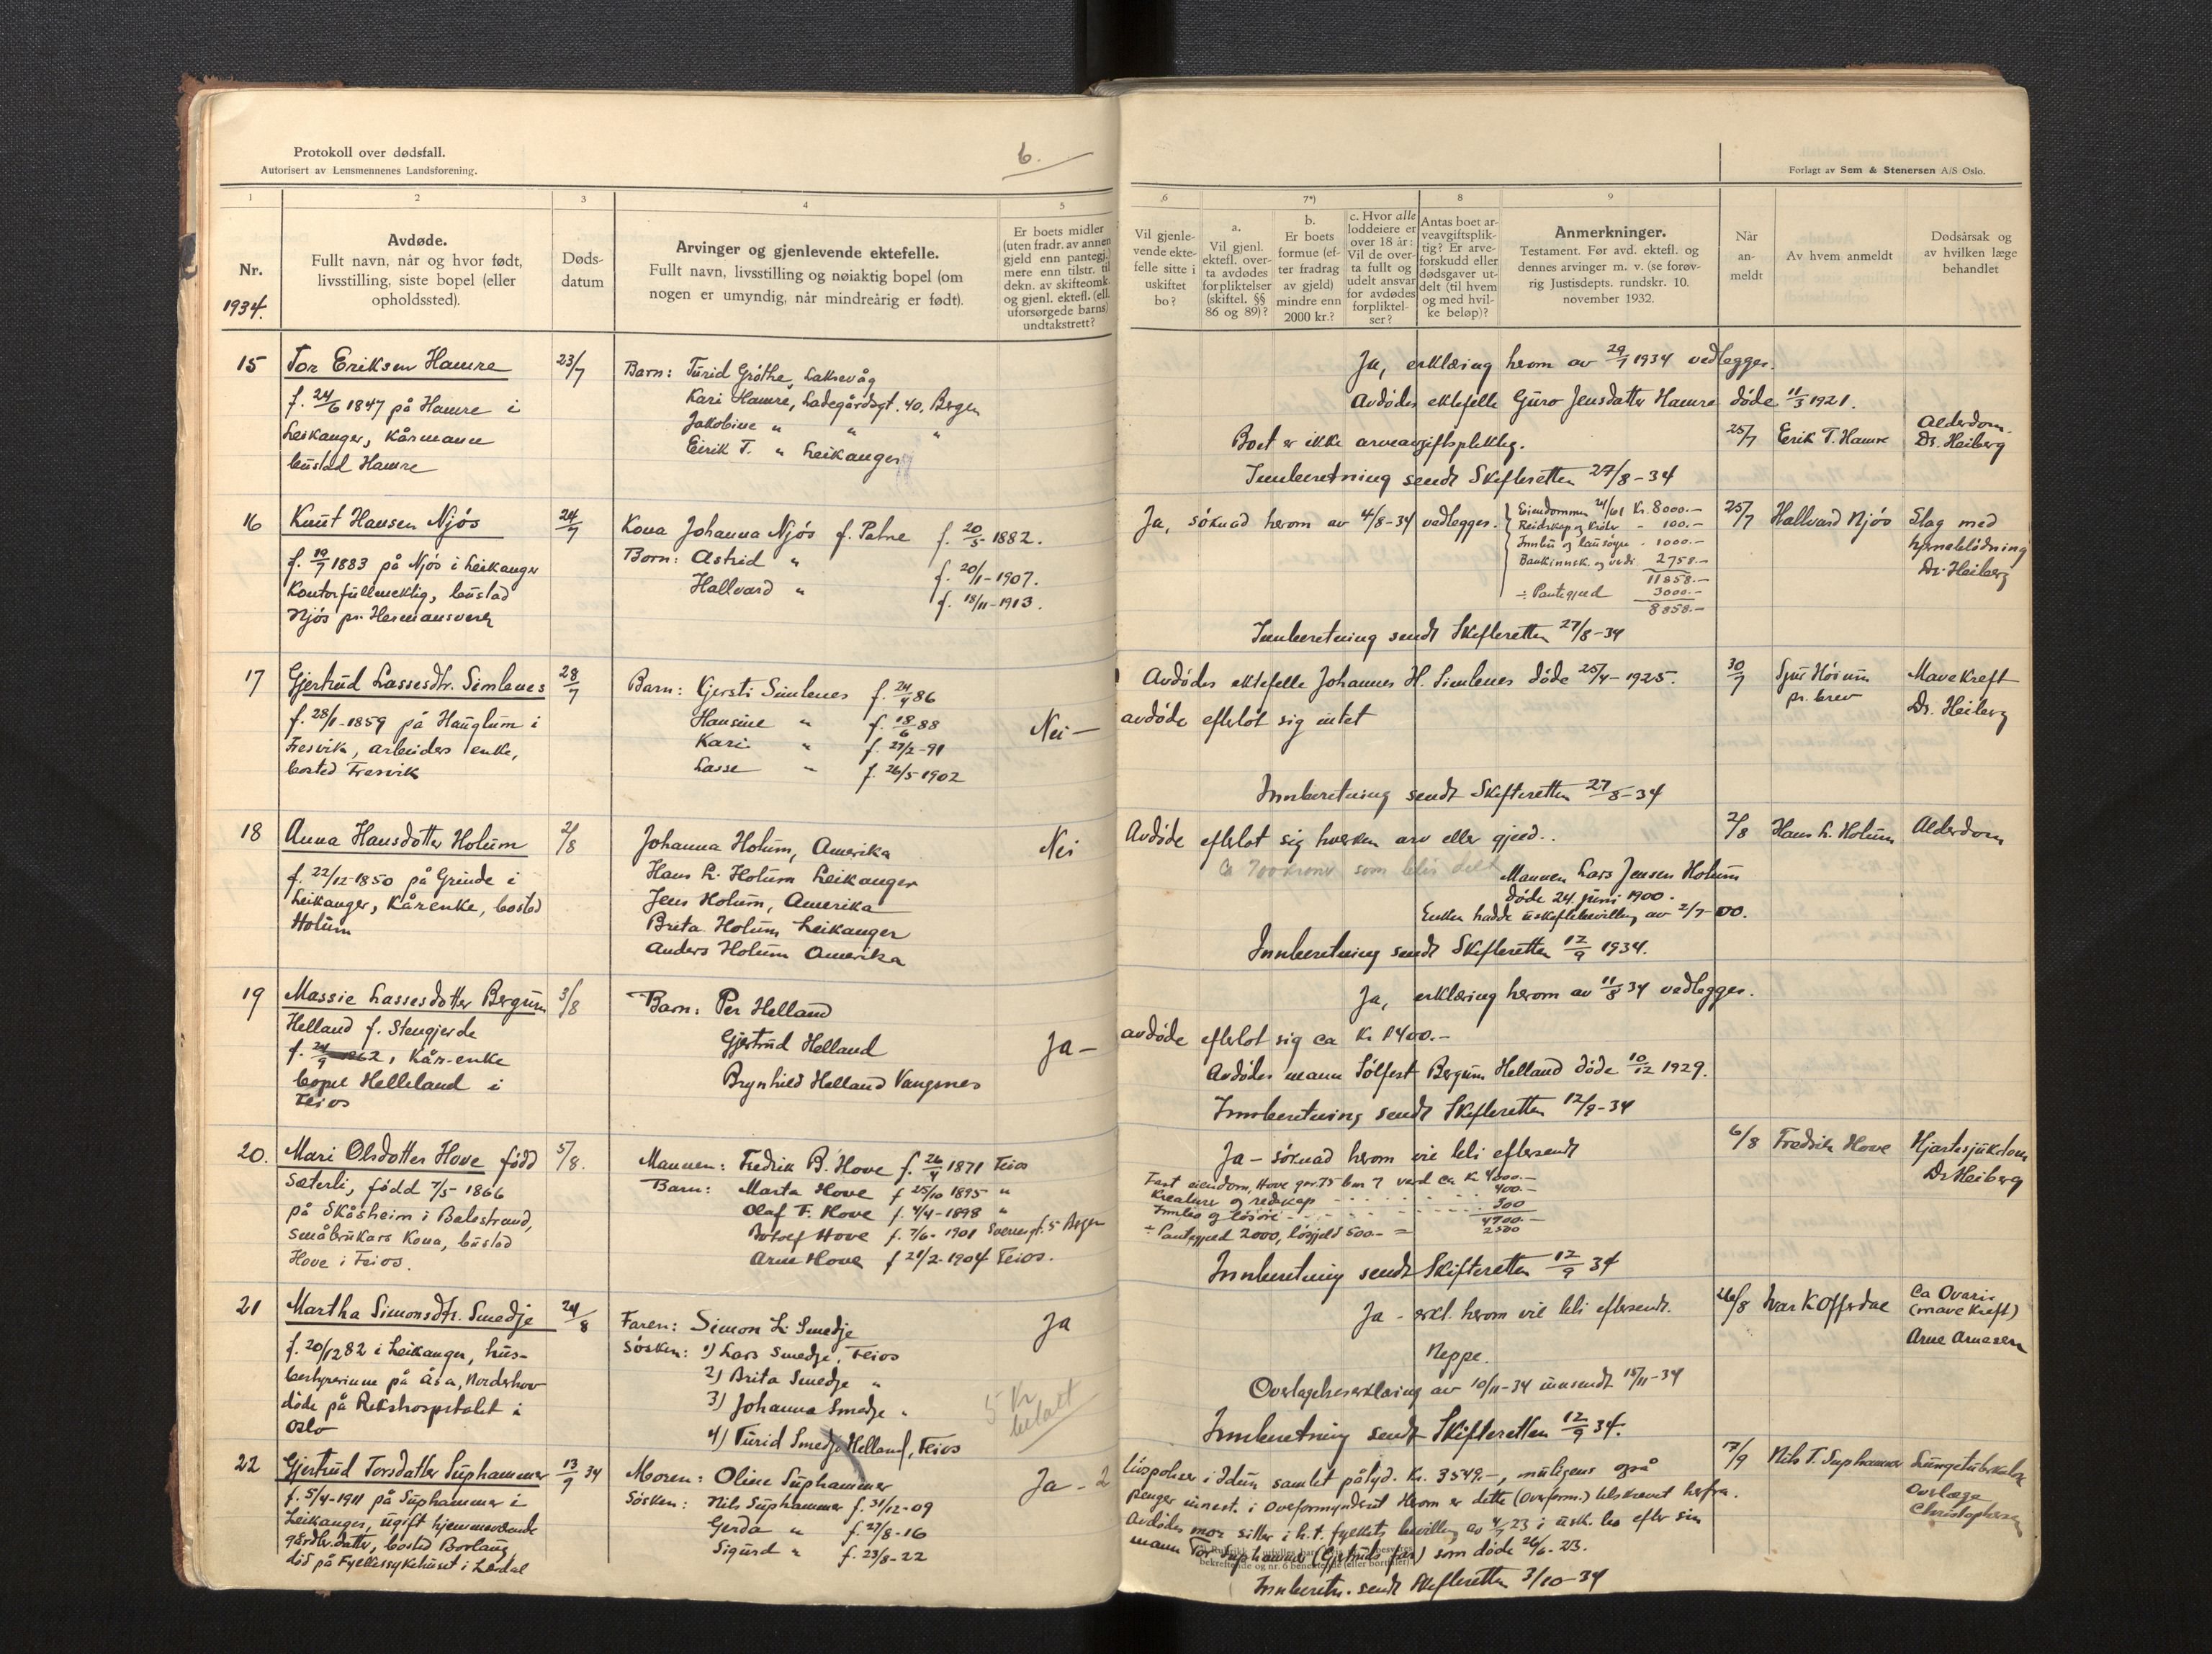 Protokoll over dødsfall.
Autorisert av Lensmennenes Landsforening.
6.
1
2
3
4
5
Nr.
1934.
Avdøde.
Fullt navn, når og hvor født,
livsstilling, siste bopel (eller
opholdssted).
Døds-
datum
Arvinger og gjenlevende ektefelle.
Fullt navn, livsstilling og nøiaktig bopel (om
nogen er umyndig, når mindreårig er født).
Er boets midler
(uten fradr. av annen
gjeld enn pantegj.)
mere enn tilstr. til
dekn. av skifteomk.
og gjenl. ektef. (ell.
uforsørgede barns)
undtakstrett?
15
Tor Eriksen Hamre
f. 24/6 1847 på Hamre i
Leikanger, Kårmann
bustad Hamre
23/7
Barn: Turid Gróthe, Laksevåg
Kari Hamre, Ladegårdsgt. 40, Bergen
Jakobine " " "
Eirik T. " Leikanger
16
Knut Hansen Njós
f. 10/7 1883 på Njós i Leikanger
Kontorfullmektig, bustad
Njós pr. Hermansverk
24/7
Kona Johanna Njós f. Petne f. 20/5 1882.
Born: Astrid " f. 20/1-1907.
Hallvard " f. 18/11-1913.
17
Gjertrud Lassesdtr. Simlenes
f. 28/1-1859 på Hauglum i
Fresvik, arbeiders enke,
bosted Fresvik
28/7
Barn: Kjersti Simlenes f. 24/4 86
Hansine " f. 18/6 88
Kari " f. 27/2-91
Lasse " f. 26/5-1902
Nei —
18
Anna Hansdotter Holum
f. 22/12-1850 på Grinde i
Leikanger, Kårenke, bosted
Holum
2/8
Johanna Holum, Amerika
Hans L. Holum Leikanger
Jens Holum, Amerika
Brita Holum Leikanger
Anders Holum Amerika
Nei
19
Massie Lassesdotter Bergum
Helland f. Stengjerde
f. 24/9 1862, Kår-enke
bopel Helleland i
Feios
3/8
Barn: Per Helland
Gjertrud Helland
Brynhild Helland Vangsnes
Ja —
20.
Mari Olsdotter Hove född
Sæterli, född 7/5-1866
på Skåsheim i Balestrand,
småbrukars Kona, bustad
Hove i Feios.
5/8.
Mannen: Fredrik B. Hove f. 26/4 1871 Feios
Barn: Marta Hove f 25/10 1895 "
Olaf F. Hove f. 4/4-1898 "
Hove f. 7/6-1901 5 Bergen
Arne Hove f 21/2-1904 Feios.
21
Martha Simonsdtr. Smedje
f. 20/12 82 i Leikanger, hus-
bestyrerinne på Åsa, Norderhov
døde på Rikshospitalet i
Oslo
24/8
Faren: Simon L. Smedje
Sósken: 1) Lars Smedje, Feios
2) Brita Smedje "
3) Johanna Smedje "
4) Turid Smedje Helland, Feios
Ja
5 kr
betalt
22
Gjertrud Torsdatter Suphammer
f. 5/4-1911 på Suphammer i
Leikanger, ugift hjemmeværende
gårdbr.datter, bosted
död på Fylkessykehuset i Lærdal
13/9 34
Moren: Oline Suphammer
Sósken: Nils Suphammer f. 31/12-09
Gerda " f. 27/8-16
Sigurd " f. 23/8-22
Ja - 2
Forlagt av Sem & Stenersen A/S Oslo.
6
7*)
8
9
Vil gjenle-
vende ekte-
felle sitte i
uskiftet
bo?
a.
Vil gjenl.
ektef. over-
ta avdødes
forpliktelser
(skiftel. §§
86 og 89)?
b.
Er boets
formue (ef-
ter fradrag
av gjeld)
mindre enn
2000 kr.?
c. Hvor alle
loddeiere er
over 18 år:
Vil de over-
ta fullt og
udelt ansvar
for avdødes
forpliktel-
ser?
Antas boet ar-
veavgiftsplik-
tig? Er arve-
forskudd eller
dødsgaver ut-
delt (til hvem
og med hvil-
ke beløp)?
Anmerkninger.
Testament. Før avd. ektefl. og
dennes arvinger m. v. (se forøv-
rig Justisdepts. rundskr. 10.
november 1932.
Når
an-
meldt
Av hvem anmeldt
Dødsårsak og
av hvilken læge
behandlet
Ja, erklæring herom av 29/7 1934 vedlegges.
Avdødes ektefelle Guro Jensdatter Hamre døde 11/3 1921.
Boet er ikke arveavgiftspliktig.
Innberetning sendt Skifteretten 27/8-34
25/7
Erik T. Hamre
Alderdom.
Dr. Heiberg
Ja, söknad herom av 4/8-34 vedlegges.
Eiendommen kr. 8000.—
Reidskap og Krøter - 100.—
Innbu og lausøyre - 1000.—
Bankinnsk. og verdi. 2758.—
11858.—
÷ Pantegjeld 3000.—
8858.—
Innberetning sendt Skifteretten 27/8-34
25/7
Hallvard Njós
Slag med
hjerneblödning
Dr. Heiberg
Avdódes ektefelle Johannes H. Simlenes døde 25/4-1925.
avdóde efterlot sig intet
Innberetning sendt Skifteretten 27/8-34
30/7
Sjur Hóium
pr. brev
Mavekreft
Dr. Heiberg
Avdóde efterlot sig hverken arv eller gjeld..
Ca 700 kroner som blir delt
Mannen Lars Jensen Holum
døde 24 juni 1900.
Enken hadde uskiftebevilling av 2/7-00.
Innberetning sendt Skifteretten 12/9 1934.
2/8
Hans L. Holum
Alderdom
Ja, erklæring herom av 11/8 34 vedlegges.
avdóde efterlot sig ca Kr 1400.—
Avdódes mann Sólfest Bergum Helland dóde 10/12 1929.
Innberetning sendt Skifteretten 12/9-34
Ja — söknad herom vil bli eftersendt
Fast eiendom, Hove gnr. 75 bnr 7 verd ca kr 4000.—
Kreaturer og redskap - - - 400.—
Innbo og løsøre - - - 300
4700.—
÷ Pantegjeld 2000, løsgjeld 500.— = 2500
Innberetning sendt Skifteretten 12/9 34
6/8
Fredrik Hove
Hjartesjukdom
Dr Heiberg
Ja - erkl. herom vil bli eftersendt.
Neppe.
Overtagelseserklæring av 10/11-34 innsendt 15/11-34
Innberetning sendt Skifteretten 12/9 34.
26/8
Ivar K Offerdal
Ca Ovarii
(mavekreft)
Arne Arnesen
Livspoliser i Idun samlet pålyd. kr. 3549.—, muligens også
penger innest. i Overformynderiet Herom er dette (Overform.) tilskrevet herfra.
Avdódes mor sitter i h.t. fylkets bevilling av 4/9 23 i usk. bo efter sin
mann Tor Suphammer (Gjertruds far) som døde 26/6-23.
Innberetn. sendt Skifteretten 3/10-34
7/9
Nils T. Suphammer
Lungetuberkulose
Overlæge
Christophersen